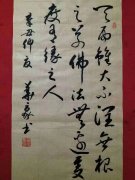 天雨雖大不潤無根
之草佛法無邊
度有緣之人
辛丑仲夏 書